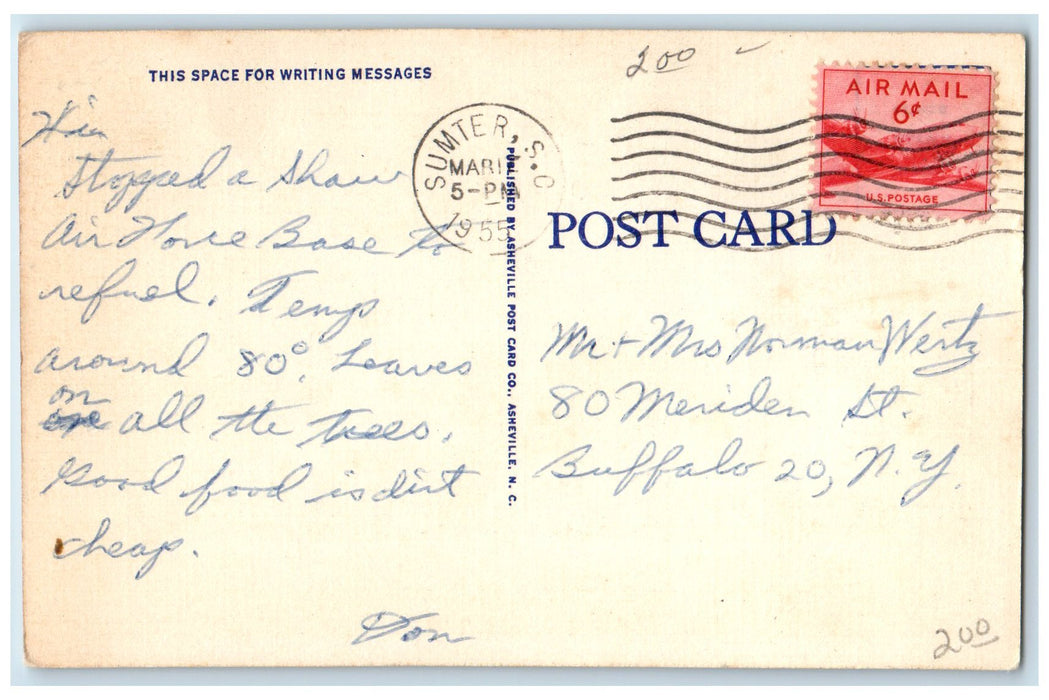 THIS SPACE FOR WRITING MESSAGES
200
AIR MAIL
6¢
U.S. POSTAGE
SUMTER, S.C
MAR
5-PM
1955
POST CARD
PUBLISHED BY ASHEVILLE POST CARD CO., ASHEVILLE, N. C.
Stopped a Shaw
Air Force Base to
refuel. Temp
around 80°. Leaves
on all the trees.
Good food is dirt
cheap.
Don
Mr + Mrs Norman Wertz
80 Meriden St.
Buffalo 20, N.Y.
200